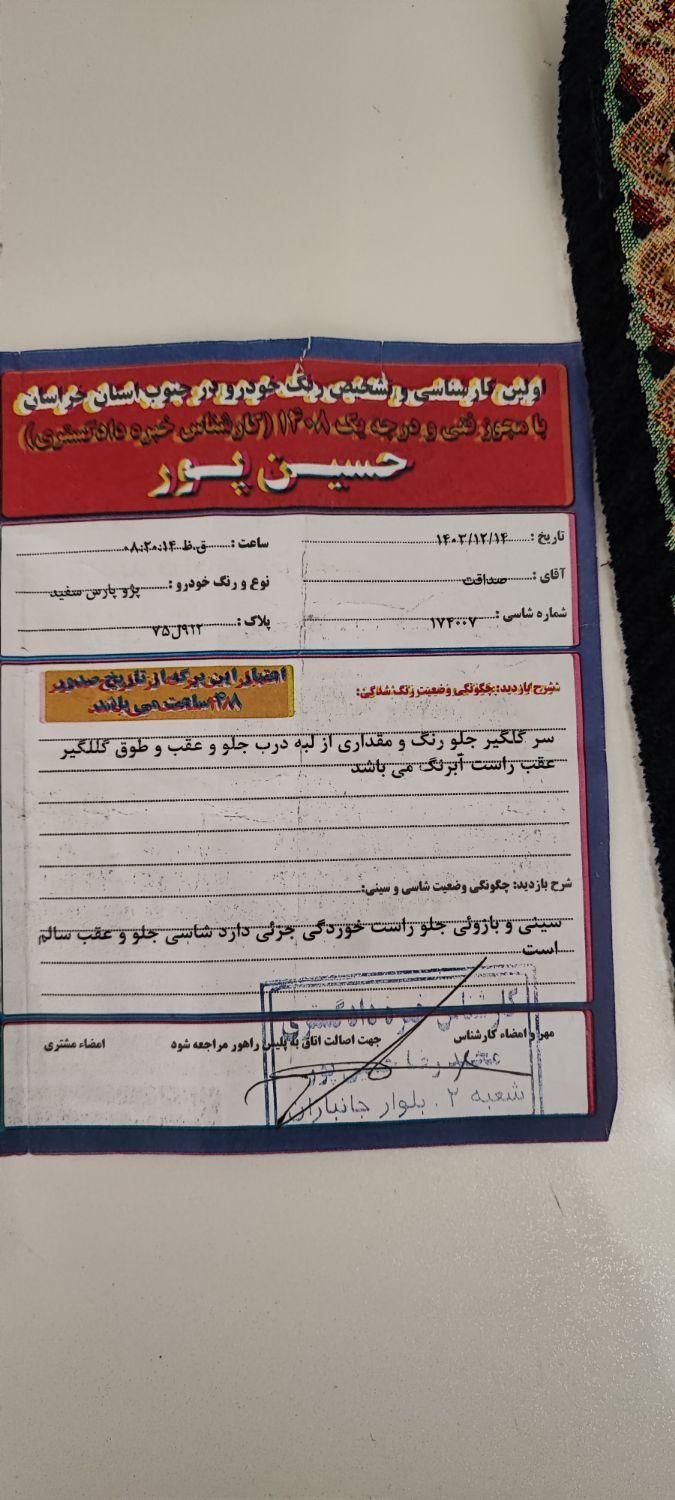 اولین کارشناسی و تشخیص رنگ خودرو در جنوب استان خراسان
با مجوز فنی و درجه یک ۱۴۰۸ (کارشناس خبره دادگستری)
حسین پور
تاریخ : ۱۴۰۳/۱۲/۱۴ ساعت : ۰۸:۲۰:۱۴ ق.ظ
آقای : صداقت نوع و رنگ خودرو : پژو پارس سفید
شماره شاسی : ۱۷۴۰۰۷ پلاک : ۹۱۲ل۷۵
شرح بازدید: چگونگی وضعیت رنگ شدگی:
اعتبار این برگه از تاریخ صدور
۴۸ ساعت می باشد
سر گلگیر جلو رنگ و مقداری از لبه درب جلو و عقب و طوق گللگیر
عقب راست آبرنگ می باشد
شرح بازدید: چگونگی وضعیت شاسی و سینی:
سینی و بازوئی جلو راست خوردگی جزئی دارد شاسی جلو و عقب سالم
است
مهر و امضاء کارشناس جهت اصالت اتاق به پلیس راهور مراجعه شود امضاء مشتری
کارشناس خبره دادگستری
شعبه ۲ . بلوار جانبازان